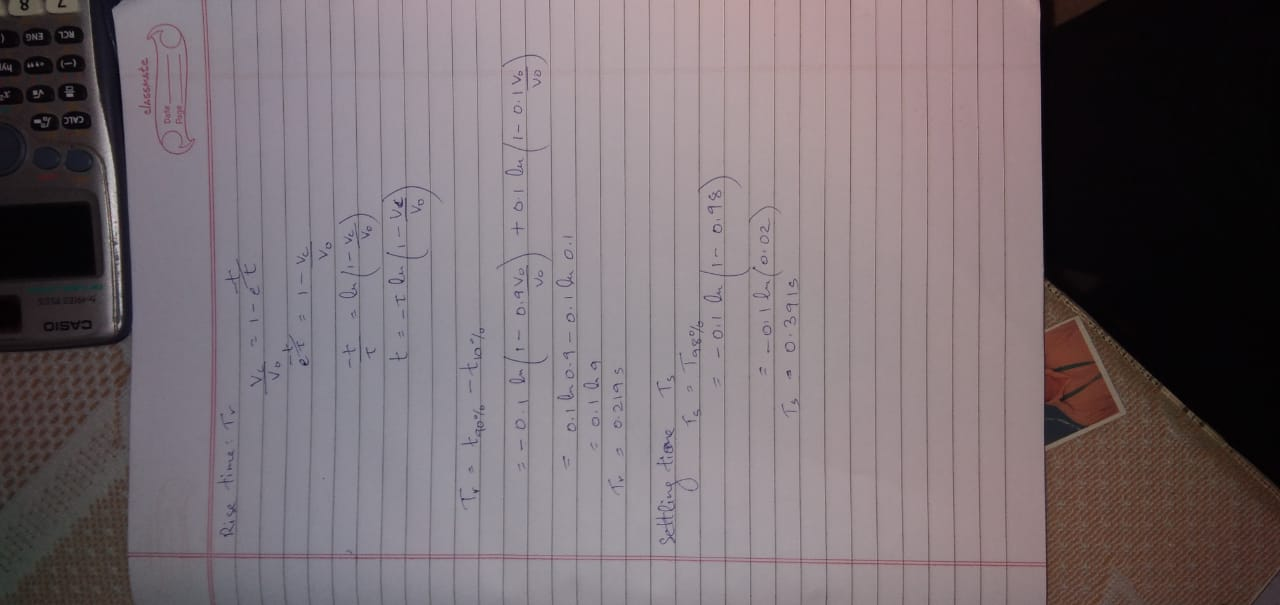 classmate
Date
Page
Rise time: Tr
Vc/V0 = 1 - e^(-t/τ)
e^(-t/τ) = 1 - Vc/V0
-t/τ = ln(1 - Vc/V0)
t = -τ ln(1 - Vc/V0)
Tr = t90% - t10%
= -0.1 ln(1 - 0.9V0/V0) + 0.1 ln(1 - 0.1V0/V0)
= 0.1 ln 0.9 - 0.1 ln 0.1
= 0.1 ln 9
Tr = 0.219s
Settling time Ts
Ts = T98%
= -0.1 ln(1 - 0.98)
= -0.1 ln(0.02)
Ts = 0.391s
CASIO
CALC
RCL
ENG
(-)
hyp
7
8